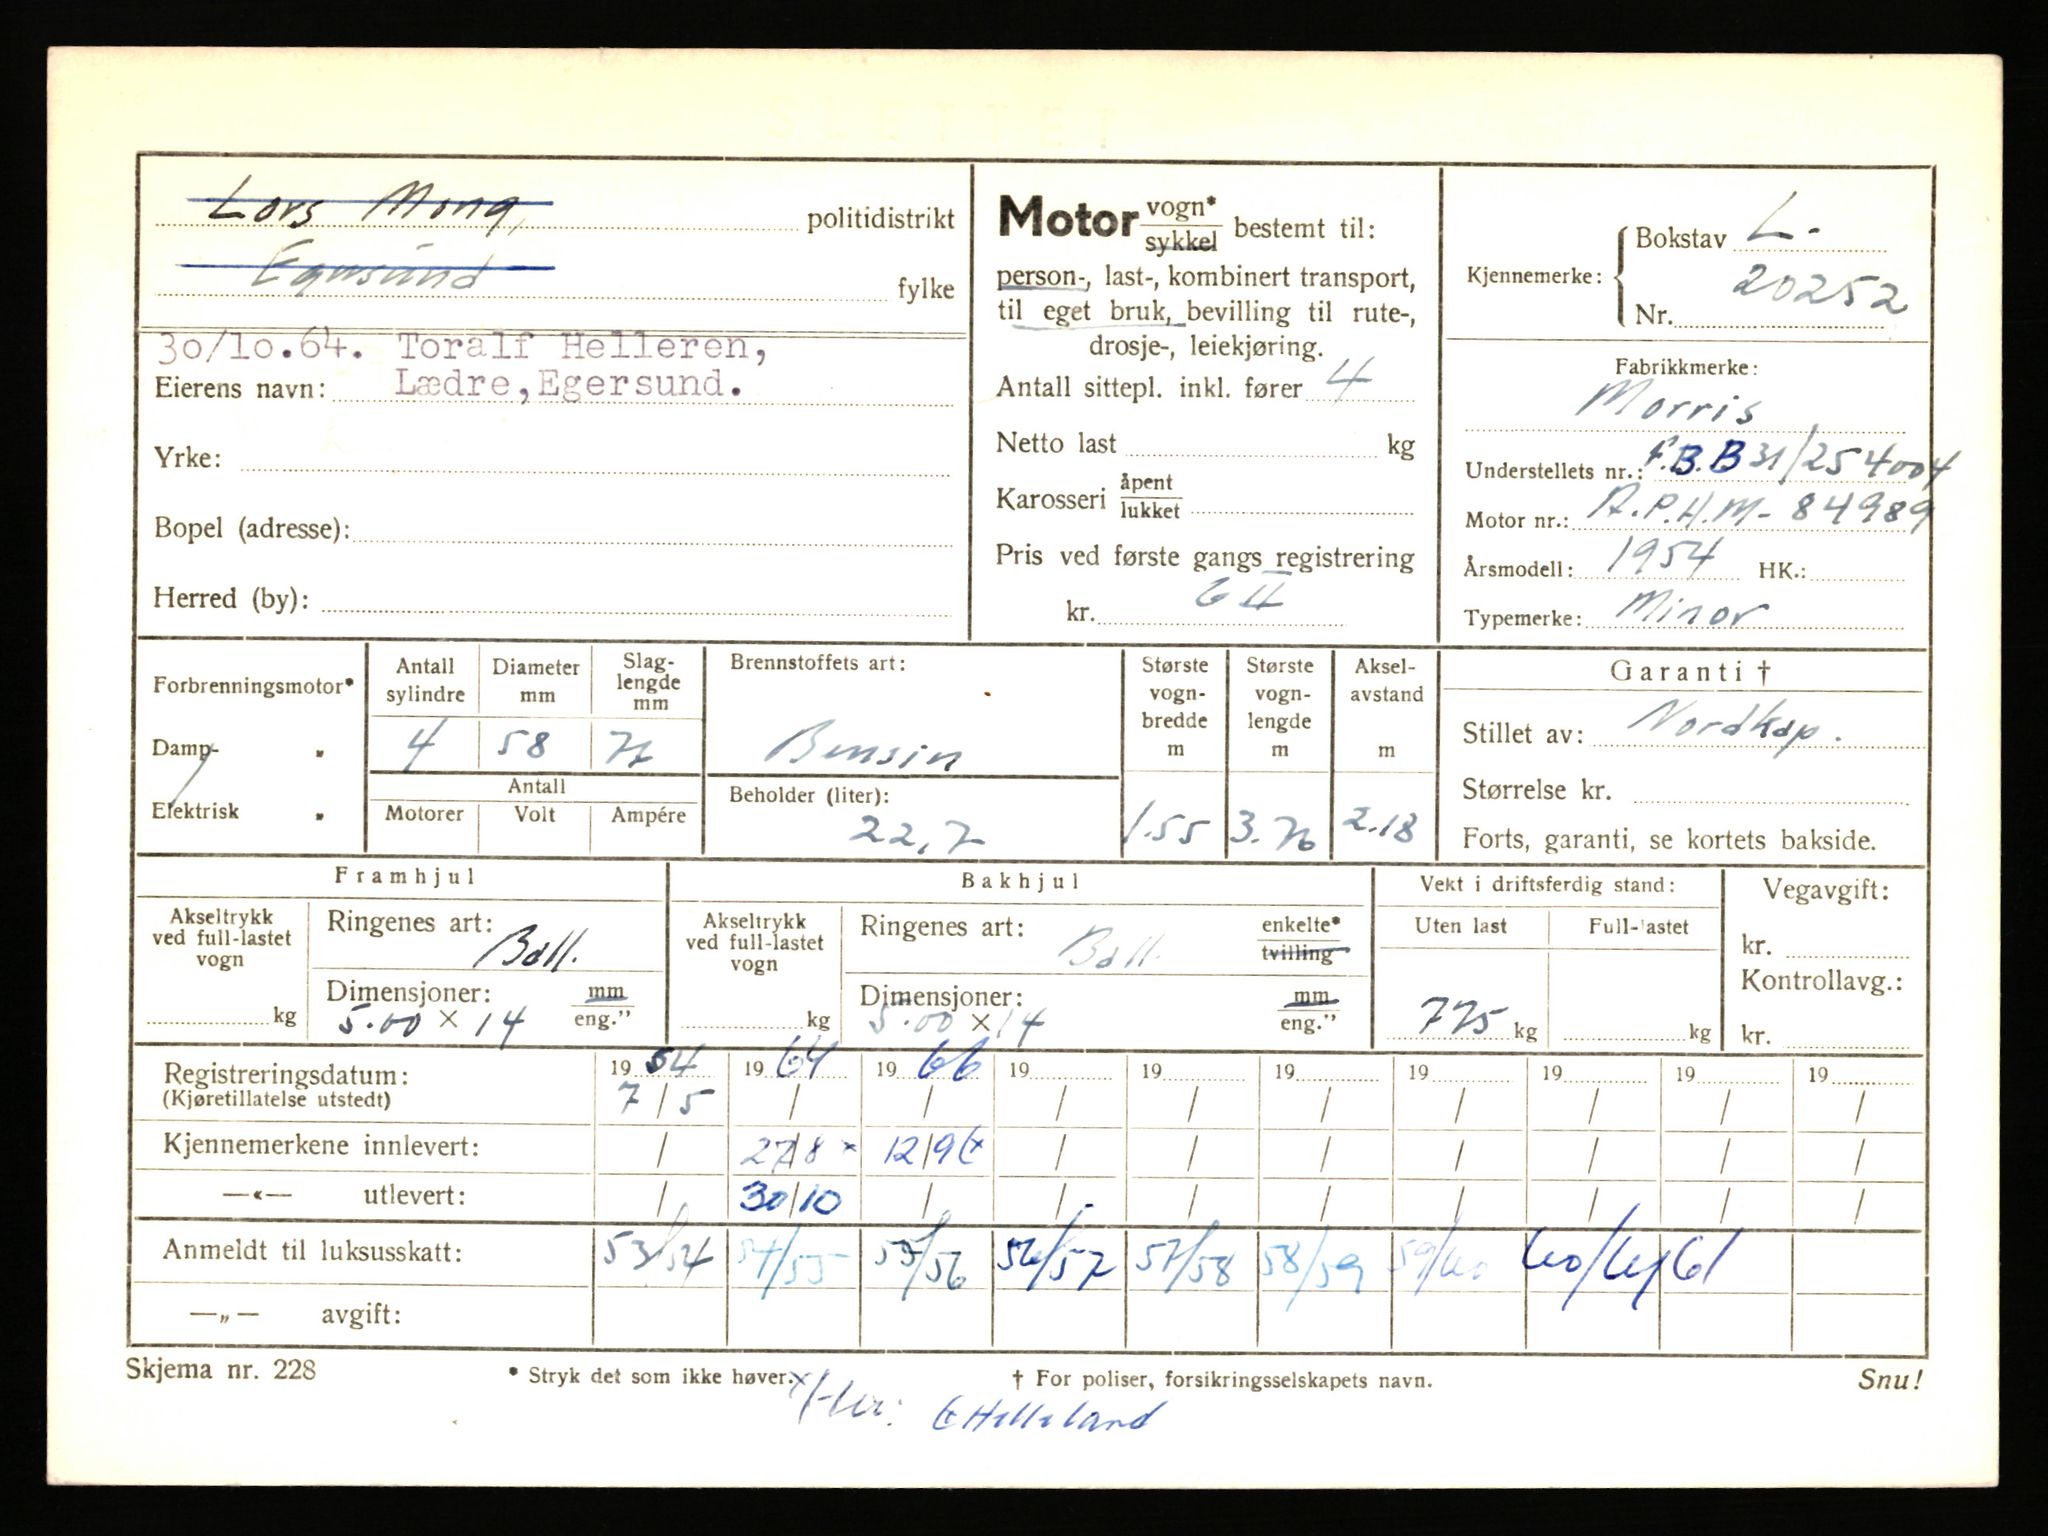 SLETTET
Lars Mong, politidistrikt
Egersund fylke
30/10.64. Toralf Helleren,
Eierens navn: Lædre, Egersund.
Yrke:
Bopel (adresse):
Herred (by):
Motor vogn* sykkel bestemt til:
person-, last-, kombinert transport,
til eget bruk, bevilling til rute-,
drosje-, leiekjøring.
Antall sittepl. inkl. fører 4
Netto last kg
Karosseri åpent lukket
Pris ved første gangs registrering
kr. G II
Kjennemerke: Bokstav L.-
Nr. 20252
Fabrikkmerke:
Morris
Understellets nr.: F.B.B 31/254004
Motor nr.: A.P.H.M- 84989
Årsmodell: 1954 HK.:
Typemerke: Minor
Forbrenningsmotor*
Damp- "
Elektrisk "
Antall sylindre Diameter mm Slag-lengde mm
4 58 76
Antall
Motorer Volt Ampére
Brennstoffets art:
Bensin
Beholder (liter):
22,7
Største vogn-bredde m
1.55
Største vogn-lengde m
3.76
Aksel-avstand m
2.18
Garanti †
Stillet av: Nordkap.
Størrelse kr.
Forts, garanti, se kortets bakside.
Framhjul
Akseltrykk ved full-lastet vogn
kg
Ringenes art: Ball.
Dimensjoner: mm eng."
5.00 × 14
Bakhjul
Akseltrykk ved full-lastet vogn
kg
Ringenes art: Ball. enkelte* tvilling
Dimensjoner: mm eng."
5.00 × 14
Vekt i driftsferdig stand:
Uten last Full-lastet
775 kg kg
Vegavgift:
kr.
Kontrollavg.:
kr.
Registreringsdatum: 19 54 19 64 19 66 19 19 19 19 19 19 19
(Kjøretillatelse utstedt) 7/5 / / / / / / / / /
Kjennemerkene innlevert: / 27/8 x 12/9 / / / / / / /
—«— utlevert: / 30/10 / / / / / / / /
Anmeldt til luksusskatt: 53/54 54/55 55/56 56/57 57/58 58/59 59/60 60/61 61
—„— avgift:
Skjema nr. 228 * Stryk det som ikke høver. † For poliser, forsikringsselskapets navn. Snu!
Helleland